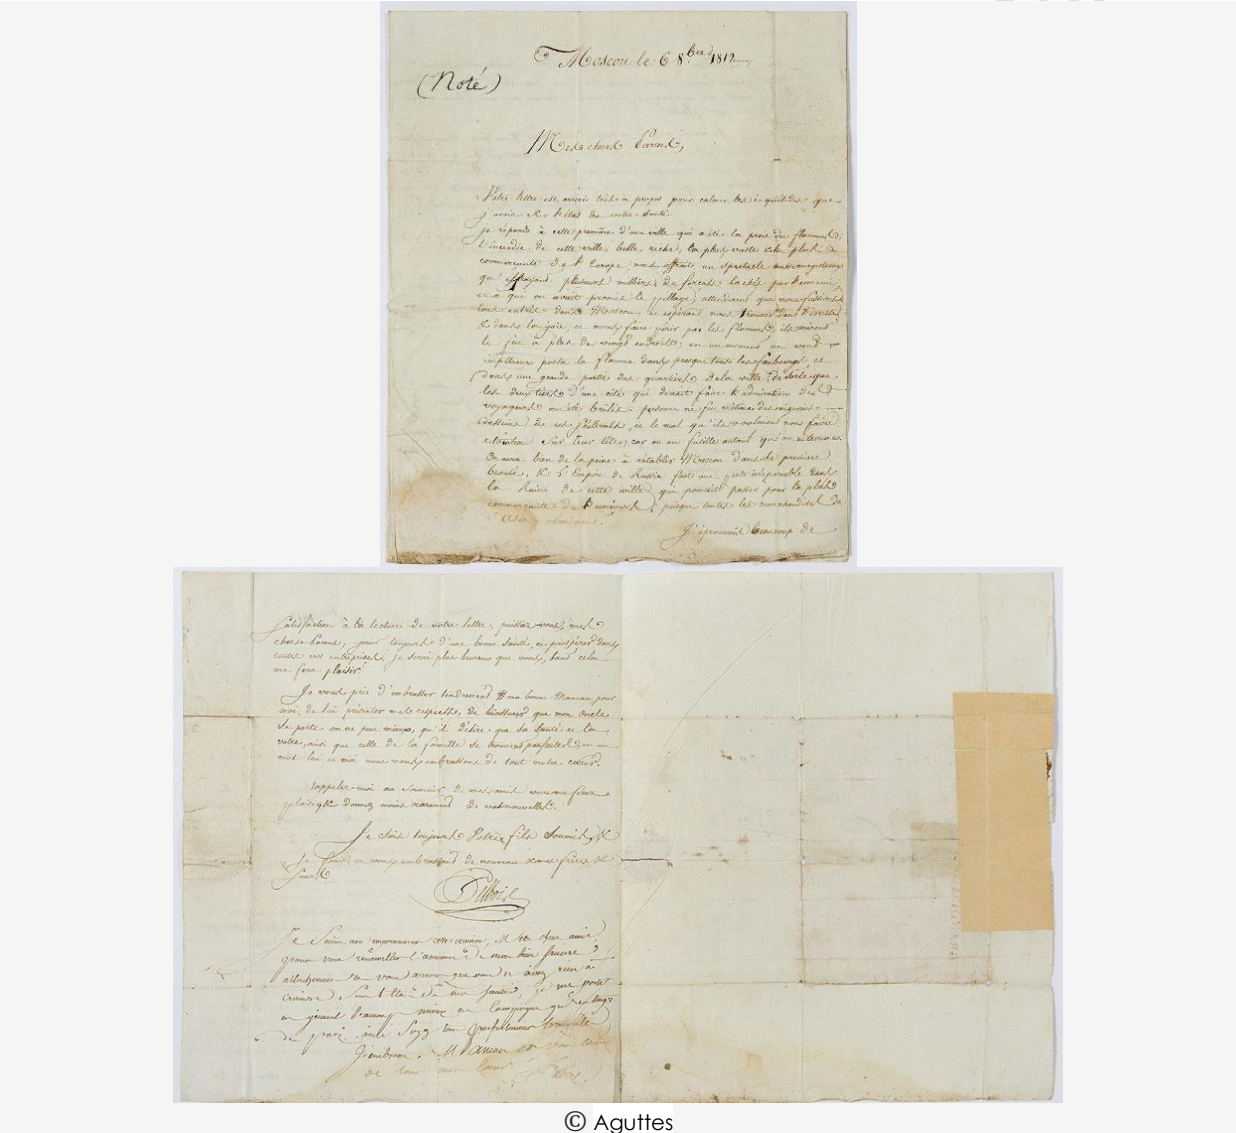 Moscou le 6 8.bre 1812
(Noté)
Mes chers Parens,
Votre lettre est arrivée très à propos pour calmer les inquiétudes que
j'avais sur l'état de votre santé
je réponds à cette première d'une ville qui a été la proie de flammes,
l'incendie de cette ville, belle, riche, la plus vaste & la plus
commercante de l'Europe nous offrait un spectacle aussi majestueux
qu'effrayant. plusieurs milliers de forcats lachés par l'ennemi,
et a que on avait promis le pillage, attendirent que nous fussions
tous entrés dans Moscou, et espérant nous trouver dans l'ivresse
& dans la joie, et nous faire périr par les flammes, ils mirent
le feu à plus de vingt endroits; en un moment un vent
impétueux porta la flamme dans presque tous les faubourgs et
dans une grande partie des quartiers de la ville, de sorte que
les deux tiers d'une cité qui devait faire l'admiration des
voyageurs ont été brûlés. personne ne fut victime des
desseins de ces scélérats, et le mal qu'ils voulaient nous faire
retomba sur leur tête, car on en fusille autant qu'on en trouve.
On aura bien de la peine à rétablir Moscou dans sa première
beauté, & l'Empire de Russie fait une perte irréparable dans
la Ruine de cette ville qui pouvait passer pour la plus
commercante de l'univers, puisque toutes les marchandises de
l'Asie y
J'éprouvai beaucoup de
satisfaction à la lecture de votre lettre, puissiez-vous, mes
chers Parens, jouir toujours d'une bonne santé, et prospérer dans
toutes vos entreprises, je serai plus heureux que vous, tant cela
me fera plaisir!
Je vous prie d'embrasser tendrement ma bonne Maman pour
moi, de lui présenter mes respects, de l'assurer que mon Oncle
se porte on ne peut mieux, qu'il désire que sa santé et la
votre, ainsi que celle de la famille se trouvent parfaites, en un
mot lui et moi nous vous embrassons de tout notre cœur.
rappelez-moi au Souvenir de mes amis vous me ferez
plaisir & donnez moins rarement de vos nouvelles.
Je suis toujours Votre fils Soumis, &
Je finis en vous embrassant de nouveau & mes frères &
Sœurs
Je Saisis avec empressement cette occasion, Mes chers amis,
pour vous renouveller l'assurance de mon bien sincère
attachement
en général beaucoup mieux en Campagne qu'en temps
de paix. ainsi Soyez donc parfaitement tranquille
J'embrasse Maman
de tout mon Cœur
© Aguttes